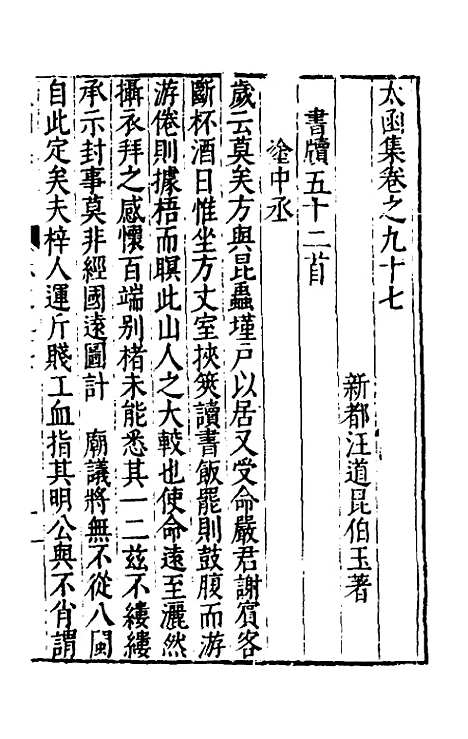 太函集卷之九十七
新都汪道昆伯玉著
書牘五十二首
塗中丞
歲云莫矣方與昆蟲墐戶以居又受命嚴君謝賓客
斷杯酒日惟坐方丈室挾筴讀書飯罷則鼓腹而游
游倦則據梧而瞑此山人之大較也使命遠至灑然
攝衣拜之感懷百端別楮未能悉其一二玆不縷縷
承示封事莫非經國遠圖計 廟議將無不從八閩
自此定矣夫梓人運斤賤工血指其明公與不肖謂